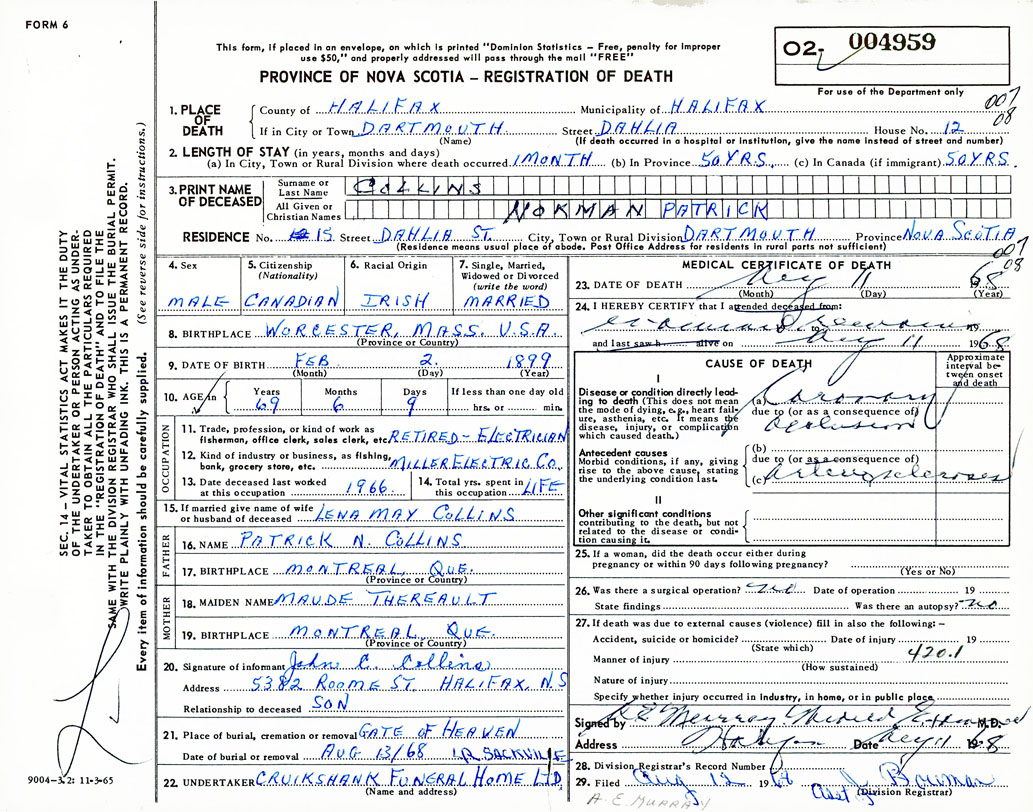 FORM 6
This form, if placed in an envelope, on which is printed "Dominion Statistics – Free, penalty for improper
use $50," and properly addressed will pass through the mail "FREE"
PROVINCE OF NOVA SCOTIA – REGISTRATION OF DEATH
02- 004959
For use of the Department only
007
08
1. PLACE OF DEATH
County of HALIFAX Municipality of HALIFAX
If in City or Town DARTMOUTH Street DAHLIA House No. 12
(Name) (If death occurred in a hospital or institution, give the name instead of street and number)
2. LENGTH OF STAY (in years, months and days)
(a) In City, Town or Rural Division where death occurred 1 MONTH (b) In Province 50 YRS. (c) In Canada (if immigrant) 50 YRS.
3. PRINT NAME OF DECEASED
Surname or Last Name COLLINS
All Given or Christian Names NORMAN PATRICK
RESIDENCE No. 15 Street DAHLIA ST. City, Town or Rural Division DARTMOUTH Province NOVA SCOTIA
(Residence means usual place of abode. Post Office Address for residents in rural parts not sufficient)
007
08
4. Sex
MALE
5. Citizenship (Nationality)
CANADIAN
6. Racial Origin
IRISH
7. Single, Married, Widowed or Divorced (write the word)
MARRIED
8. BIRTHPLACE WORCESTER, MASS. U.S.A.
(Province or Country)
9. DATE OF BIRTH FEB 2. 1899
(Month) (Day) (Year)
10. AGE in Years 69 Months 6 Days 9 If less than one day old hrs. or min.
OCCUPATION
11. Trade, profession, or kind of work as fisherman, office clerk, sales clerk, etc. RETIRED – ELECTRICIAN
12. Kind of industry or business, as fishing, bank, grocery store, etc. MILLER ELECTRIC CO.
13. Date deceased last worked at this occupation 1966
14. Total yrs. spent in this occupation LIFE
15. If married give name of wife or husband of deceased LENA MAY COLLINS
FATHER
16. NAME PATRICK N. COLLINS
17. BIRTHPLACE MONTREAL QUE.
(Province or Country)
MOTHER
18. MAIDEN NAME MAUDE THEREAULT
19. BIRTHPLACE MONTREAL QUE.
(Province or Country)
20. Signature of informant John C. Collins
Address 5382 ROOME ST. HALIFAX, N.S
Relationship to deceased SON
21. Place of burial, cremation or removal GATE OF HEAVEN
Date of burial or removal AUG 13/68 LR. SACKVILLE
22. UNDERTAKER CRUIKSHANK FUNERAL HOME LTD.
(Name and address)
MEDICAL CERTIFICATE OF DEATH
23. DATE OF DEATH Aug 11 68
(Month) (Day) (Year)
24. I HEREBY CERTIFY that I attended deceased from:
examined 19 to
and last saw h alive on Aug 11 1968
CAUSE OF DEATH
Approximate interval between onset and death
I
Disease or condition directly leading to death (This does not mean the mode of dying, e.g., heart failure, asthenia, etc. It means the disease, injury, or complication which caused death.)
(a) Coronary
due to (or as a consequence of)
occlusion
Antecedent causes
Morbid conditions, if any, giving rise to the above cause, stating the underlying condition last.
(b)
due to (or as a consequence of)
(c) Arteriosclerosis
II
Other significant conditions contributing to the death, but not related to the disease or condition causing it.
25. If a woman, did the death occur either during pregnancy or within 90 days following pregnancy?
(Yes or No)
26. Was there a surgical operation? no Date of operation 19
State findings Was there an autopsy? no
27. If death was due to external causes (violence) fill in also the following: –
Accident, suicide or homicide? Date of injury 19
(State which)
420.1
Manner of injury
(How sustained)
Nature of injury
Specify whether injury occurred in industry, in home, or in public place
Signed by A E Murray Medical Examiner M.D.
Address Date Aug 11 1968
28. Division Registrar's Record Number
29. Filed Aug 12 1968 Asst J. Bauman
(Division Registrar)
A. E. MURRAY
SEC. 14 – VITAL STATISTICS ACT MAKES IT THE DUTY
OF THE UNDERTAKER OR PERSON ACTING AS UNDER-
TAKER TO OBTAIN ALL THE PARTICULARS REQUIRED
IN THE "REGISTRATION OF DEATH" AND TO FILE THE
SAME WITH THE DIVISION REGISTRAR WHO SHALL ISSUE THE BURIAL PERMIT.
WRITE PLAINLY WITH UNFADING INK. THIS IS A PERMANENT RECORD.
Every item of information should be carefully supplied. (See reverse side for instructions.)
9004-3.2: 11-3-65